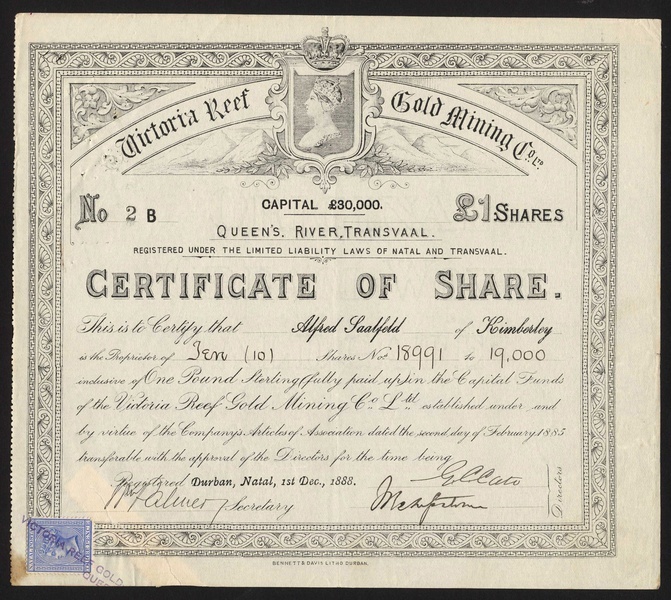 Victoria Reef Gold Mining Co. Ltd.
No 2 B
CAPITAL £30,000.
£1 SHARES
QUEEN'S. RIVER, TRANSVAAL.
REGISTERED UNDER THE LIMITED LIABILITY LAWS OF NATAL AND TRANSVAAL.
CERTIFICATE OF SHARE.
This is to Certify that Alfred Saalfeld of Kimberley
is the Proprietor of Ten (10) Shares Nos. 18991 to 19,000
inclusive of One Pound Sterling (fully paid up) in the Capital Funds
of the Victoria Reef Gold Mining Co. Ltd. established under and
by virtue of the Company's Articles of Association dated the second day of February 1885
transferable with the approval of the Directors for the time being
Registered Durban, Natal, 1st Dec., 1888.
Secretary
Directors
VICTORIA REEF GOLD
BENNETT & DAVIS LITHO DURBAN.